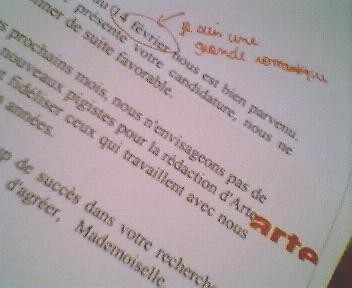 du 14 février nous est bien parvenu.
je suis une
grande romantique
présente votre candidature, nous ne
donner de suite favorable.
prochains mois, nous n'envisageons pas de
nouveaux pigistes pour la rédaction d'Arte
fidéliser ceux qui travaillent avec nous
années.
arte
de succès dans votre recherche
d'agréer, Mademoiselle